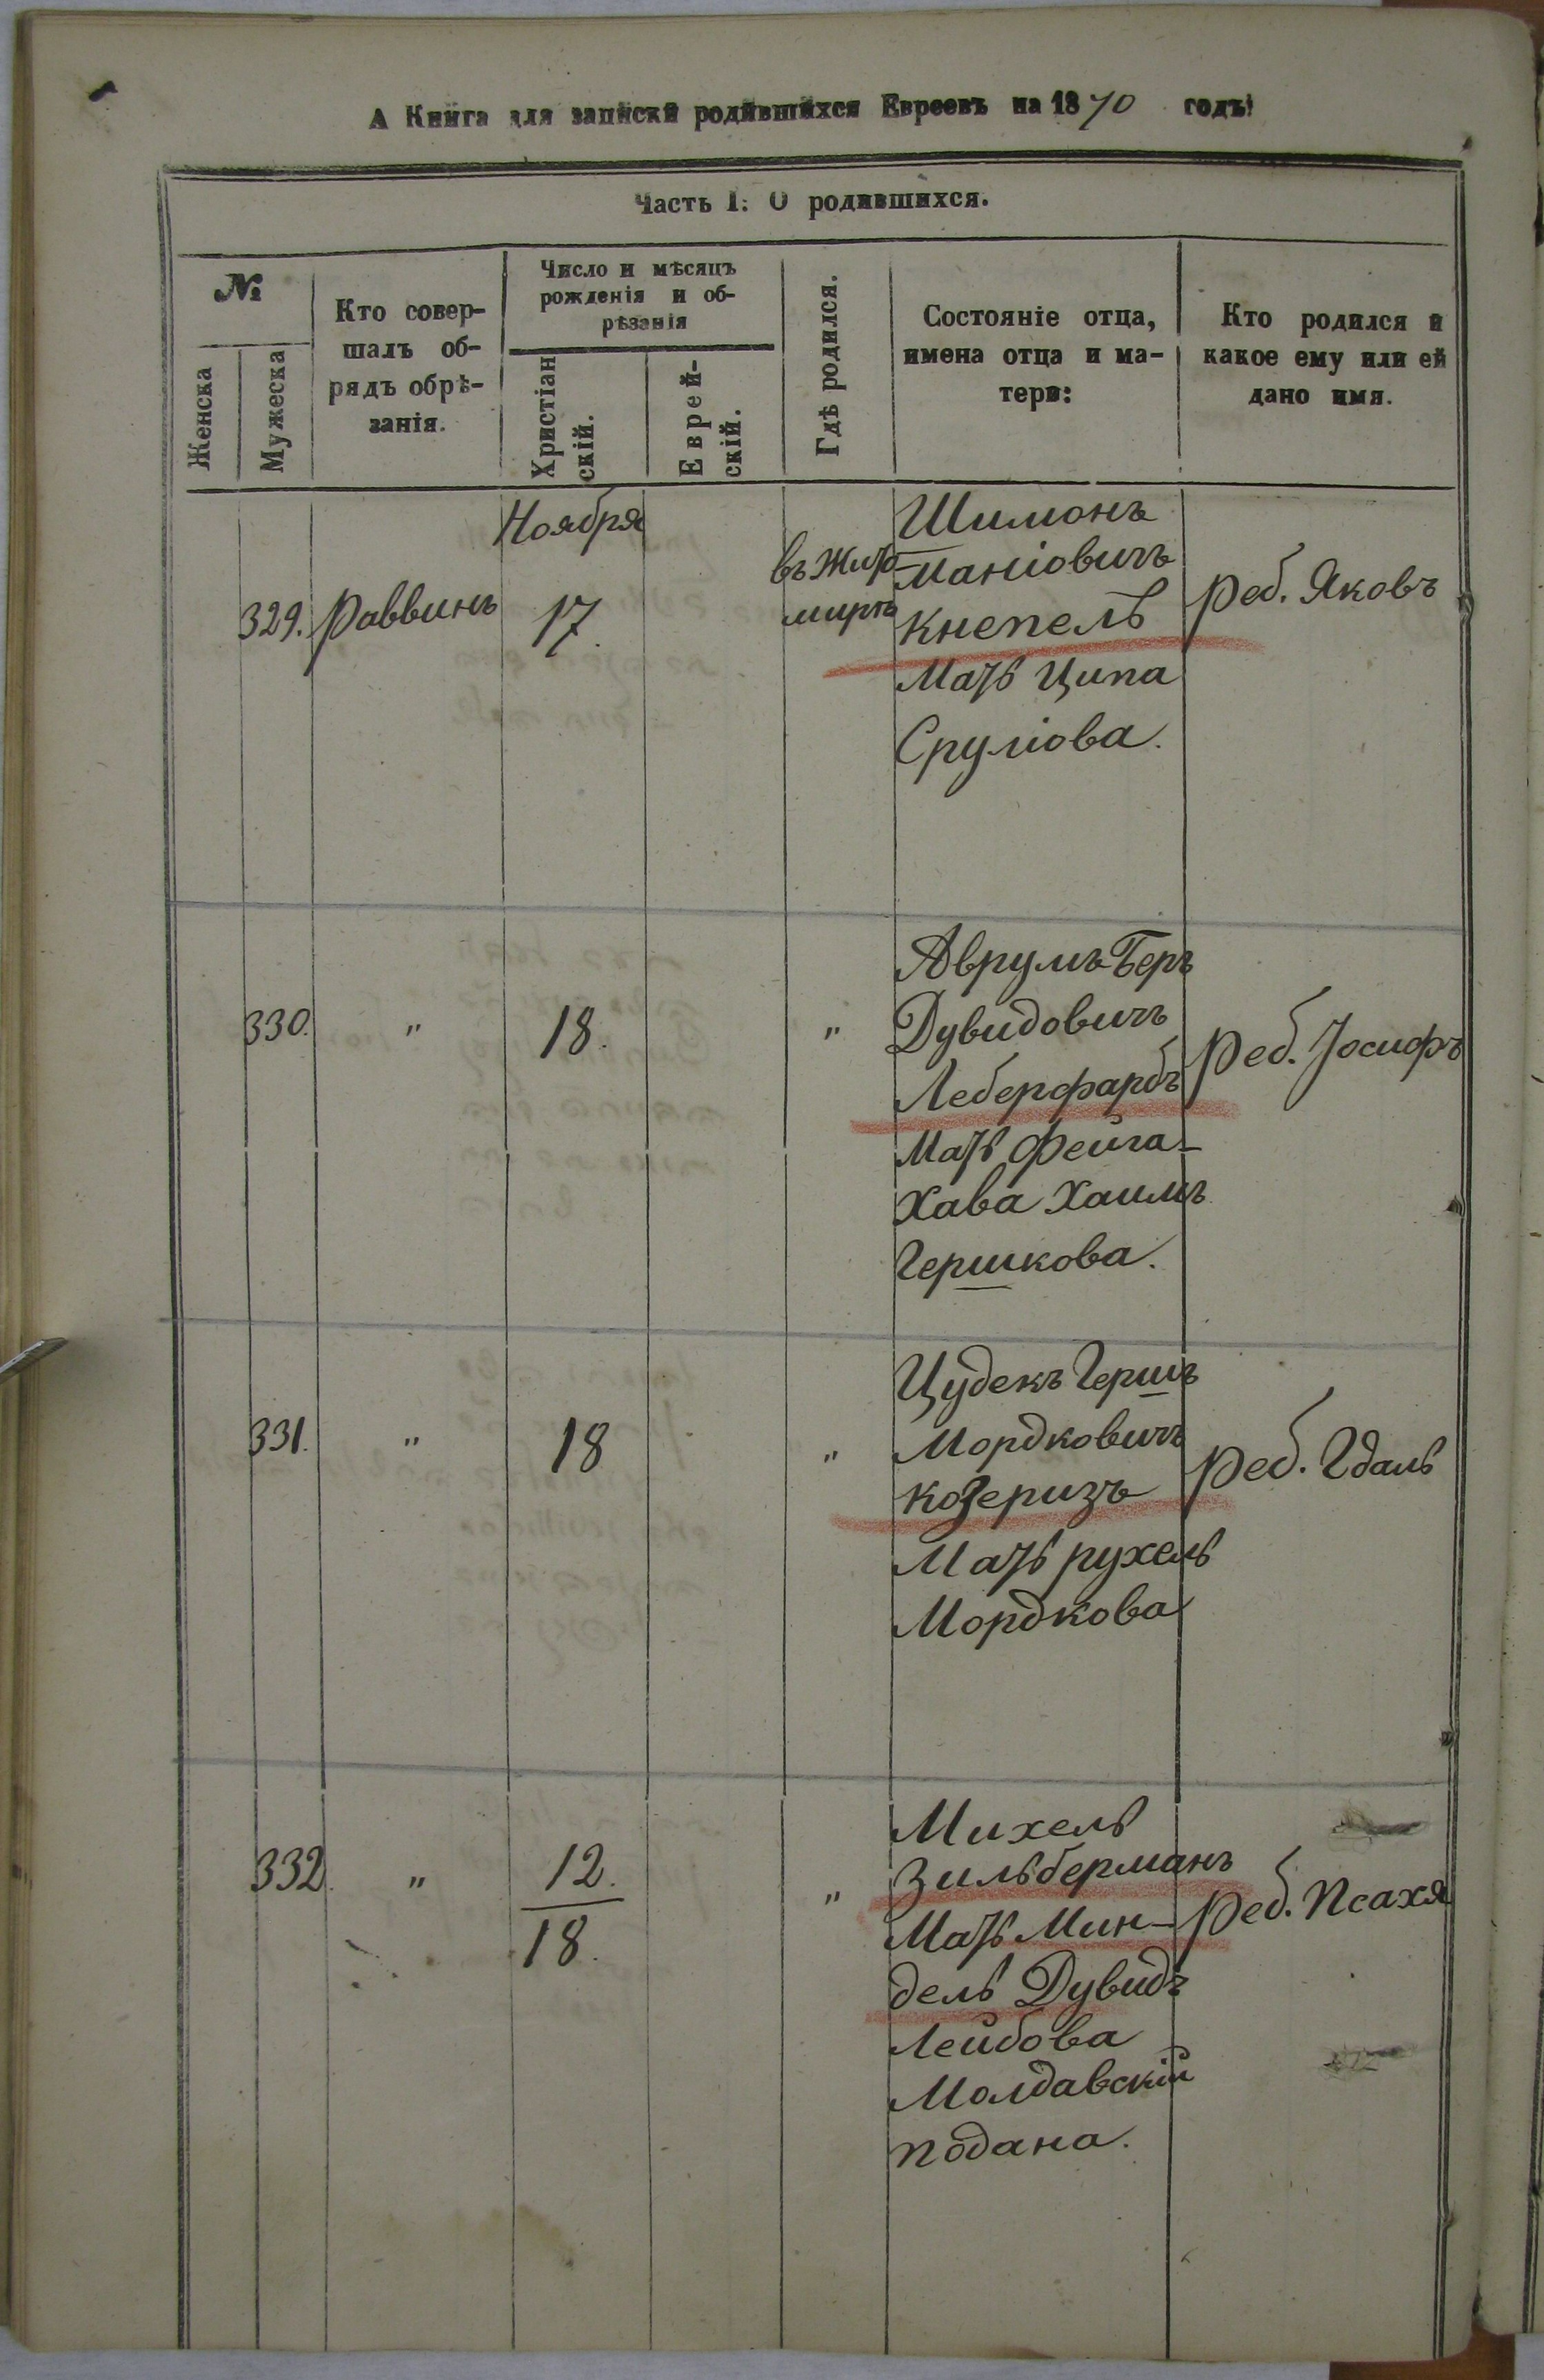 А Книга для записки родившихся Евреевъ на 1870 годъ:
Часть I: О родившихся.
№
Женска
Мужеска
Кто совер-
шалъ об-
рядъ обрѣ-
занія.
Число и мѣсяцъ
рожденія и об-
рѣзанія
Христіан
скій.
Еврей-
скій.
Гдѣ родился.
Состояніе отца,
имена отца и ма-
тери:
Кто родился и
какое ему или ей
дано имя.
Ноября
329. Раввинъ 17.
въ Жито-
мирѣ
Шимонъ
Маніовичъ
Кнепель
Мать Ципа
Сруліова.
Реб. Яковъ
330. " 18. "
Аврумъ Беръ
Дувидовичъ
Леберфарбъ
Мать Фейга-
Хава Хаимъ
Гершкова.
Реб. Іосифъ
331. " 18 "
Цудекъ Гершъ
Мордковичъ
Козеризъ
Мать Рухель
Мордкова
Реб. Гдаль
332. " 12.
18. "
Михель
Зильберманъ
Мать Мин-
дель Дувидъ
Лейбова
Молдавскій
подана.
Реб. Псахя